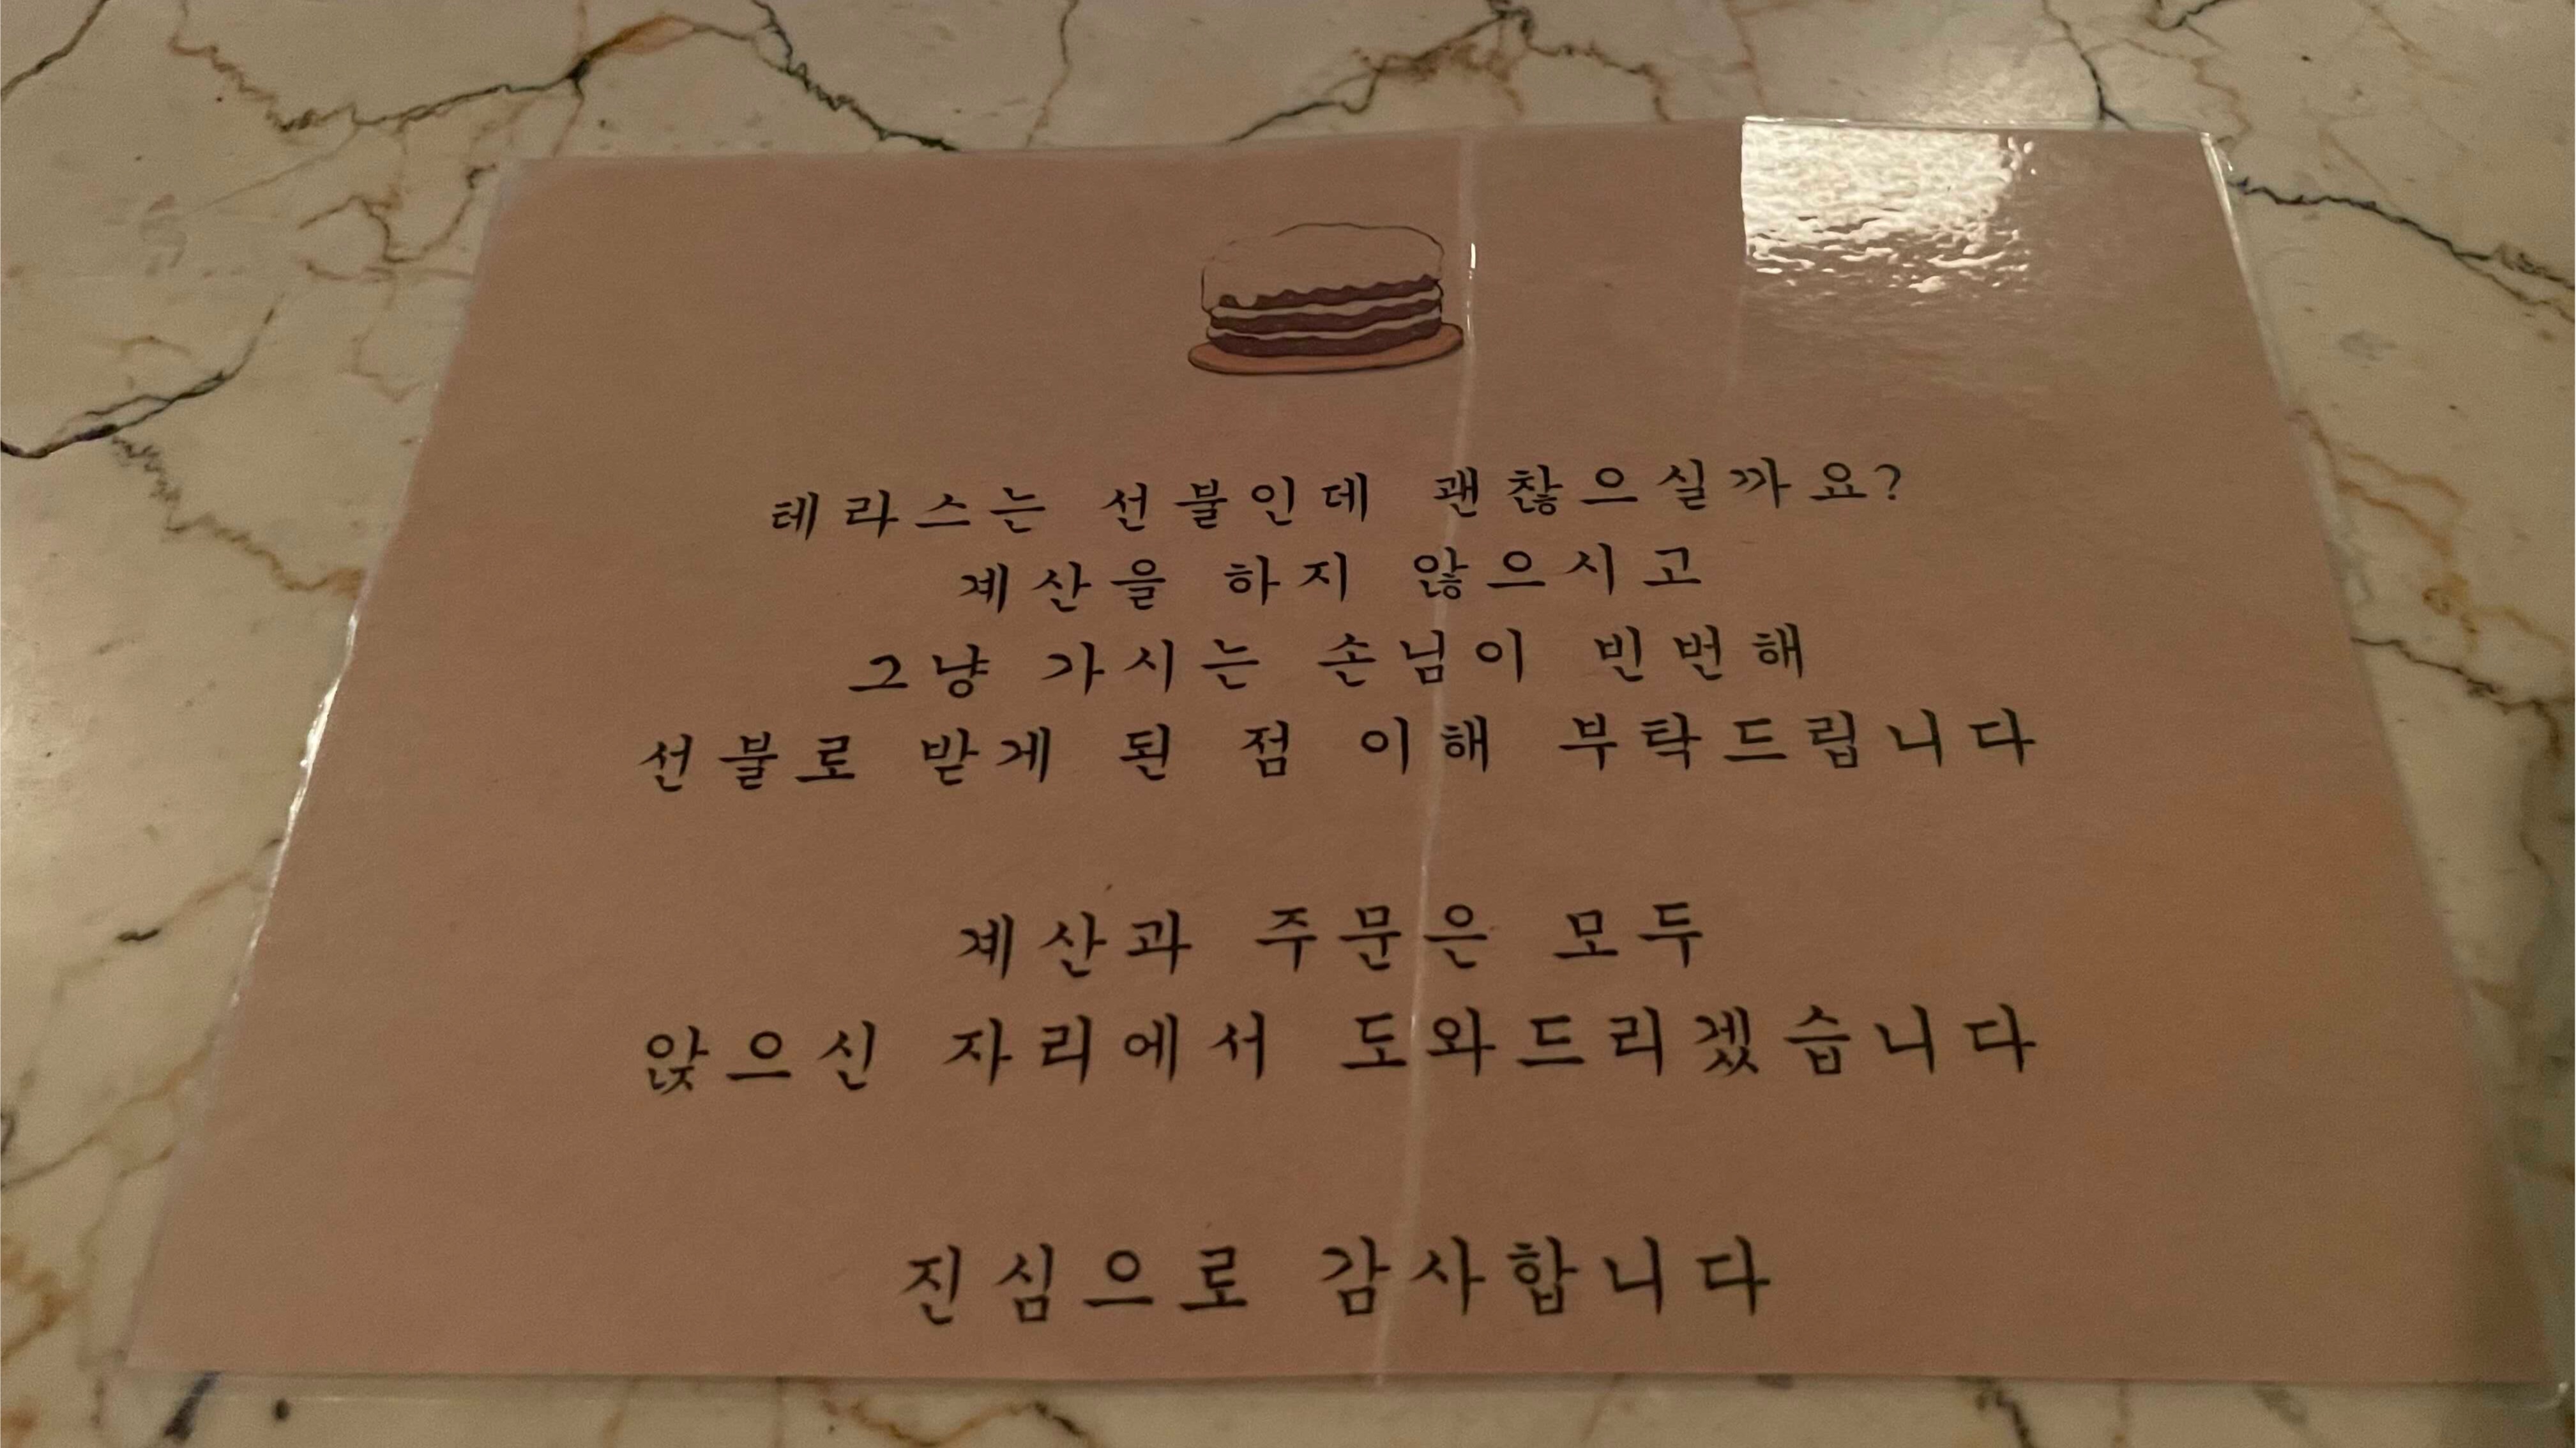 테라스는 선불인데 괜찮으실까요?
계산을 하지 않으시고
그냥 가시는 손님이 빈번해
선불로 받게 된 점 이해 부탁드립니다
계산과 주문은 모두
앉으신 자리에서 도와드리겠습니다
진심으로 감사합니다